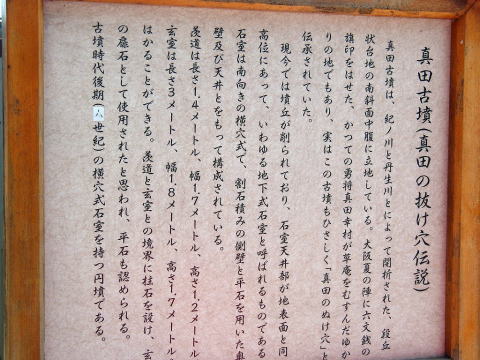 真田古墳(真田の抜け穴伝説)
真田古墳は、紀ノ川と丹生川とによって開析された、段丘
状台地の南斜面中腹に立地している。大阪夏の陣に六文銭の
旗印をはせた、かつての勇将真田幸村が草庵をむすんだゆか
りの地でもあり、実はこの古墳もひさしく「真田のぬけ穴」と
伝承されていた。
現今では墳丘が削られており、石室天井部が地表面と同
高位にあって、いわゆる地下式石室と呼ばれるものである
石室は南向きの横穴式で、割石積みの側壁と平石を用いた奥
壁及び天井とをもって構成されている。
羨道は長さ1.4メートル、幅1.7メートル、高さ1.2メートル
玄室は長さ3メートル、幅1.8メートル、高さ1.7メートル
はかることができる。羨道と玄室との境界に柱石を設け、玄
の扉石として使用されたと思われ、平石も認められる。
古墳時代後期(六世紀)の横穴式石室を持つ円墳である。